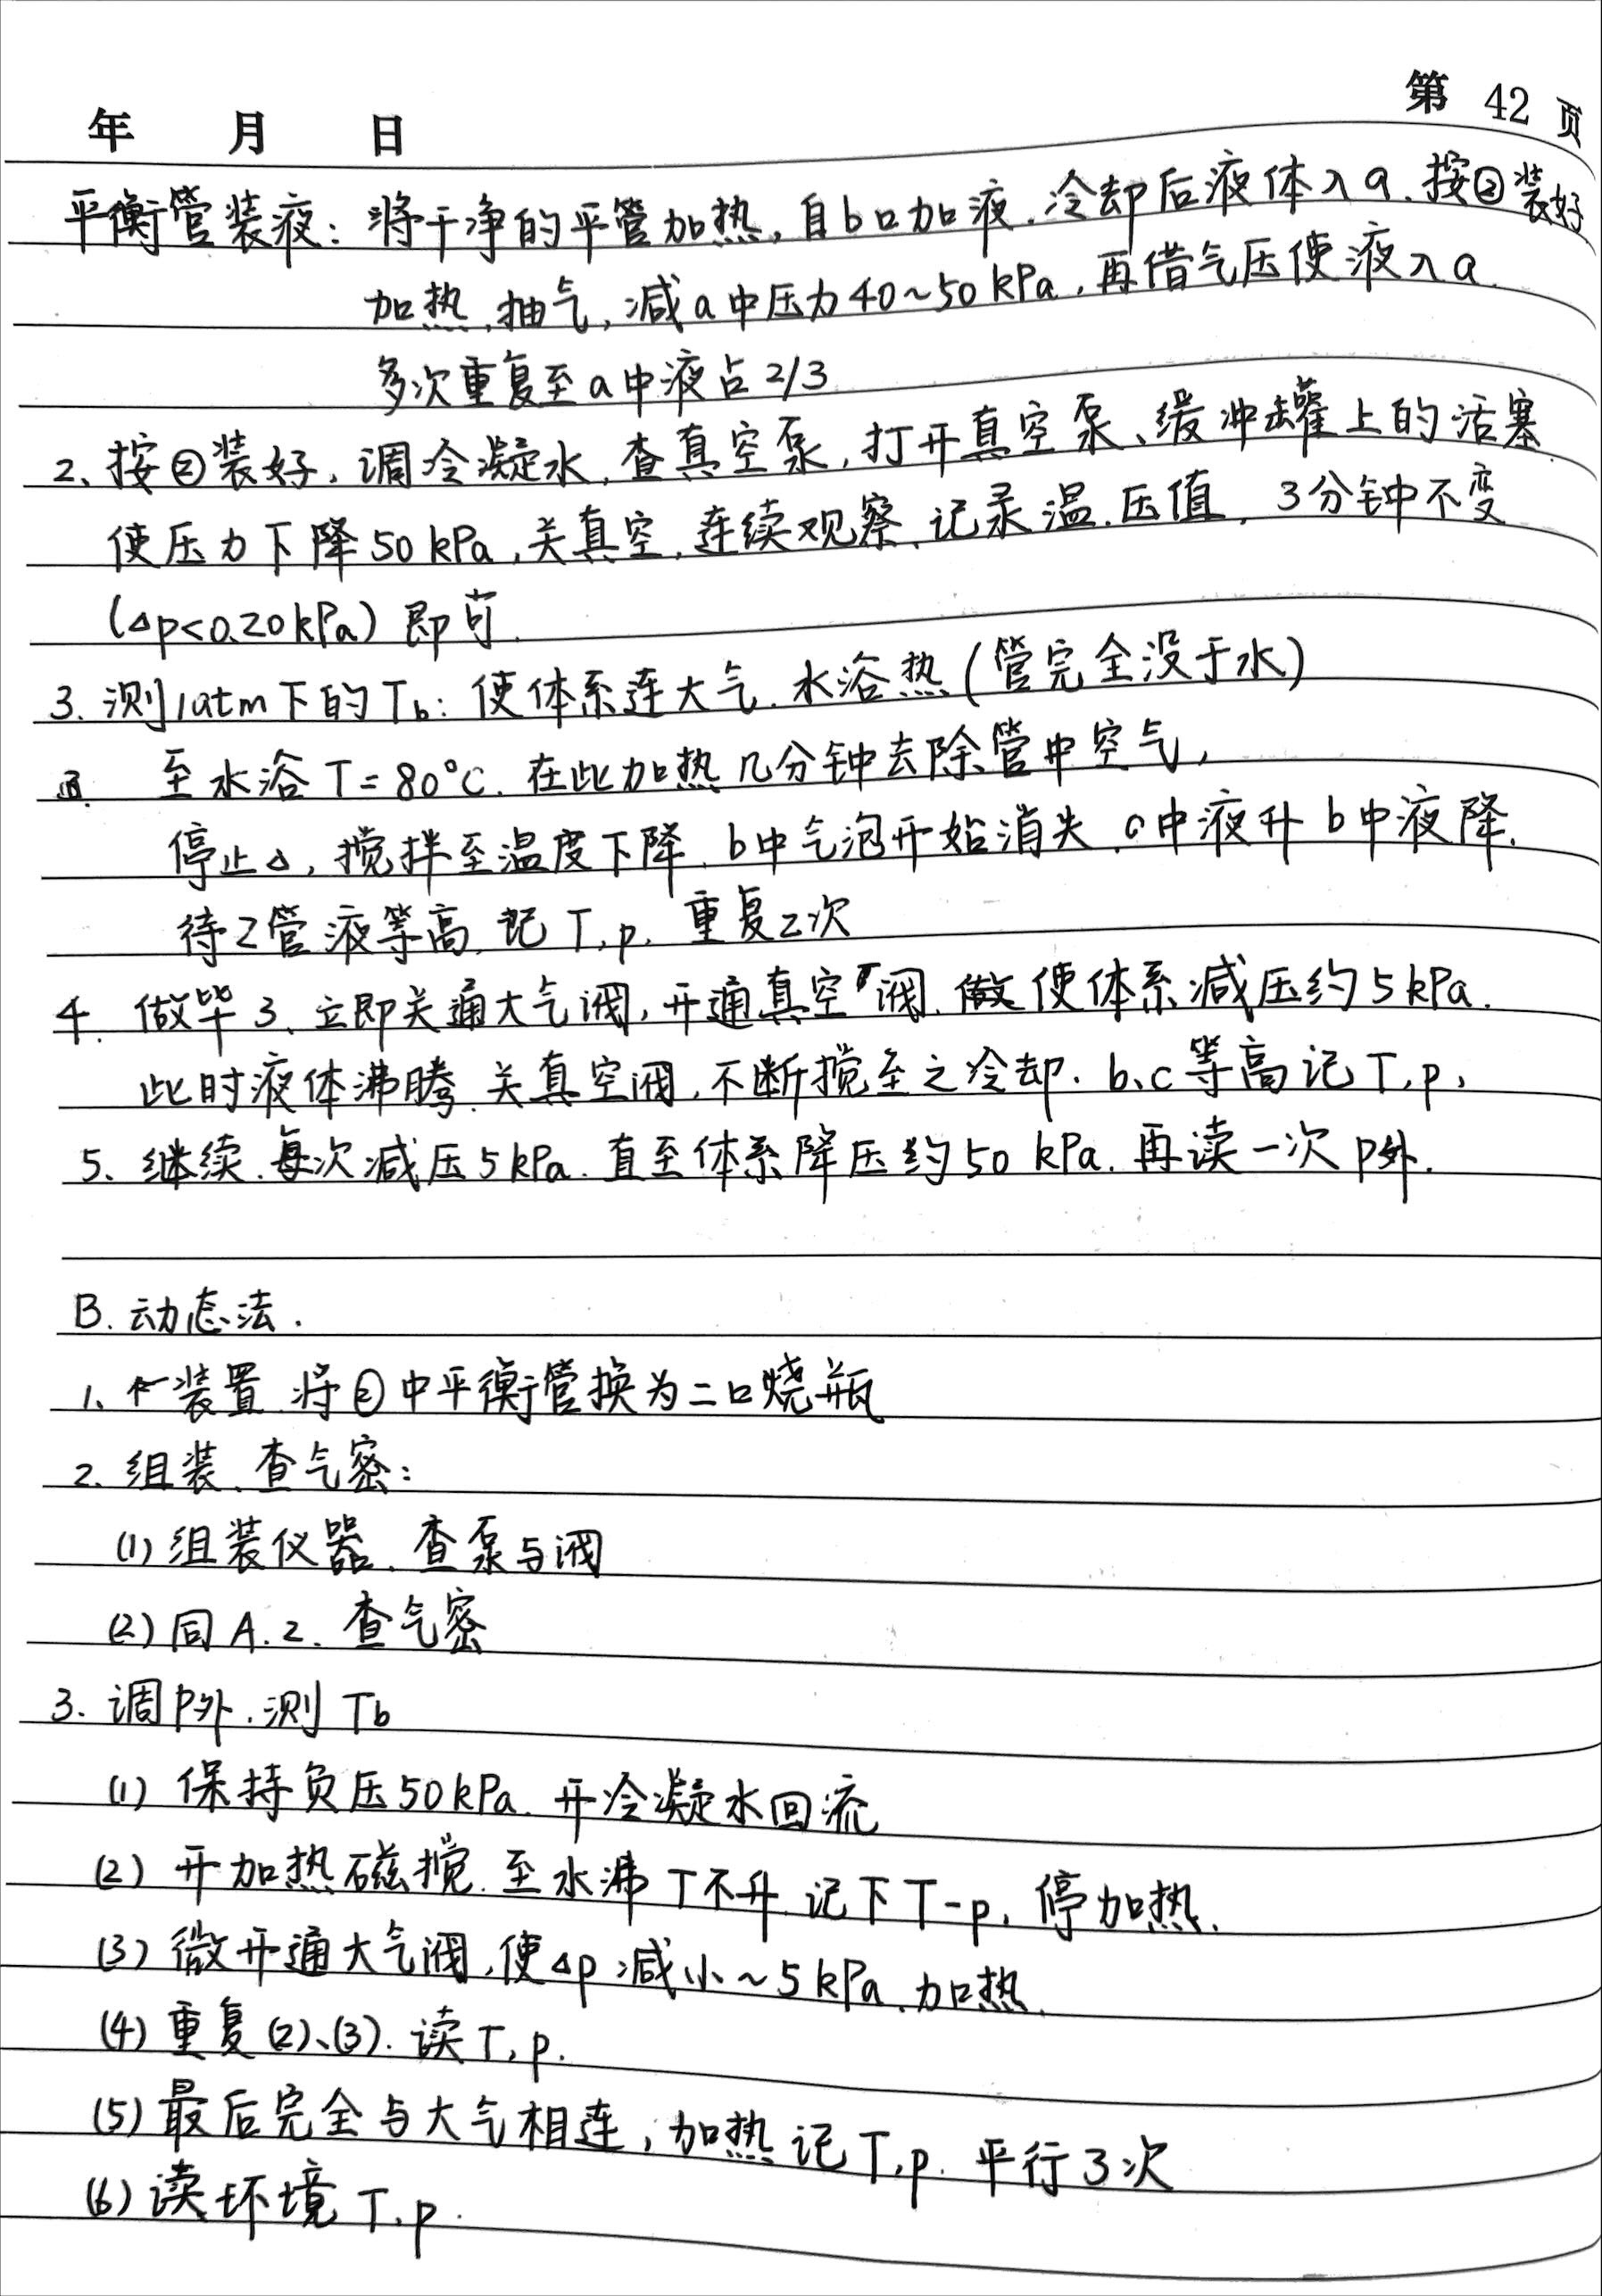 第 42 页
年 月 日
平衡管装液：将干净的平管加热，自b口加液．冷却后液体入a．按②装好
加热，抽气，减a中压力40~50kPa，再借气压使液入a．
多次重复至a中液占2/3
2、按②装好，调冷凝水，查真空泵，打开真空泵、缓冲罐上的活塞．
使压力下降50kPa，关真空，连续观察、记录温．压值，3分钟不变
(Δp<0.20kPa）即可．
3. 测1atm下的Tb：使体系连大气．水浴热(管完全没于水)
至水浴T=80°C．在此加热几分钟去除管中空气，
停止Δ，搅拌至温度下降，b中气泡开始消失．c中液升b中液降．
待2管液等高，记T,p，重复2次
4. 做毕3、立即关通大气阀，开通真空阀．使体系减压约5kPa．
此时液体沸腾．关真空阀，不断搅至之冷却．b、c等高记T,p，
5、继续．每次减压5kPa．直至体系降压约50 kPa．再读一次p外．
B．动态法．
1、装置 将②中平衡管换为二口烧瓶
2. 组装、查气密：
(1) 组装仪器、查泵与阀
(2) 同A.2. 查气密
3. 调p外．测Tb
(1) 保持负压50kPa．开冷凝水回流
(2) 开加热磁搅．至水沸T不升．记下T-p，停加热．
(3) 微开通大气阀，使Δp减小~5kPa．加热．
(4) 重复(2)、(3)．读T,p．
(5) 最后完全与大气相连，加热记T,p．平行3次
(6) 读环境T,p．